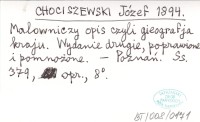 CHOCISZEWSKI Józef 1894.
Malowniczy opis czyli gieografja
kraju. Wydanie drugie, poprawione
i pomnożone. – Poznań. Ss.
379, opr., 8°.
BT/008/0171